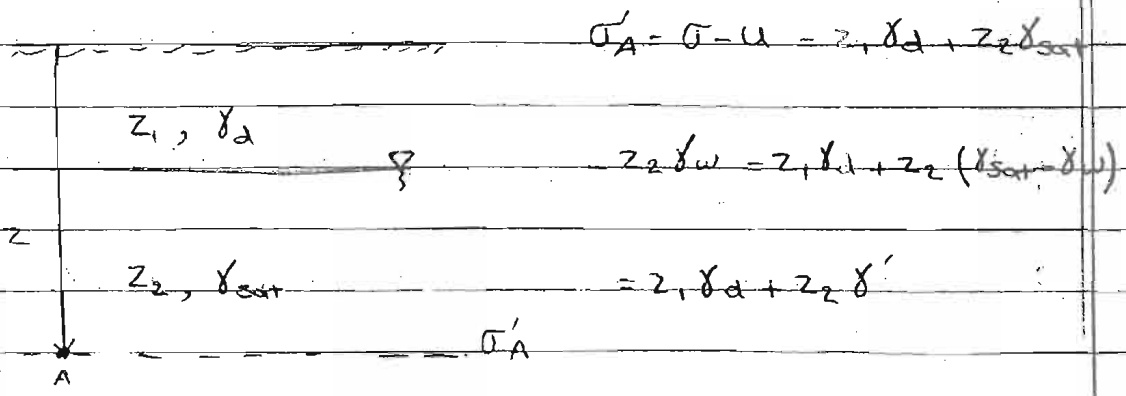 σ'A - σ-u = z₁γd + z₂γsat
z₁, γd
z₂γw = z₁γd + z₂(γsat-γw)
z
z₂, γsat
= z₁γd + z₂γ'
σ'A
A